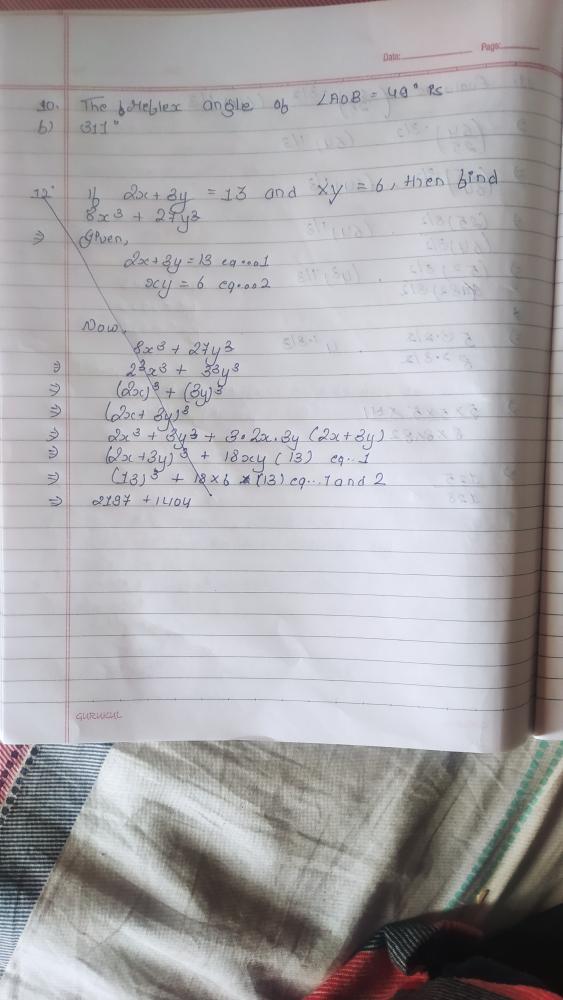 Date: Page:
10. The reflex angle of ∠AOB = 49° is
b) 311°
12. If 2x + 3y = 13 and xy = 6, then find
8x³ + 27y³
⇒ Given,
2x + 3y = 13 eq...1
xy = 6 eq...2
Now,
8x³ + 27y³
⇒ 2³x³ + 3³y³
⇒ (2x)³ + (3y)³
⇒ (2x + 3y)³
⇒ 2x³ + 3y³ + 3•2x•3y (2x + 3y)
⇒ (2x + 3y)³ + 18xy (13) eq...1
⇒ (13)³ + 18 × 6 × (13) eq...1 and 2
⇒ 2197 + 1404
GURUKUL